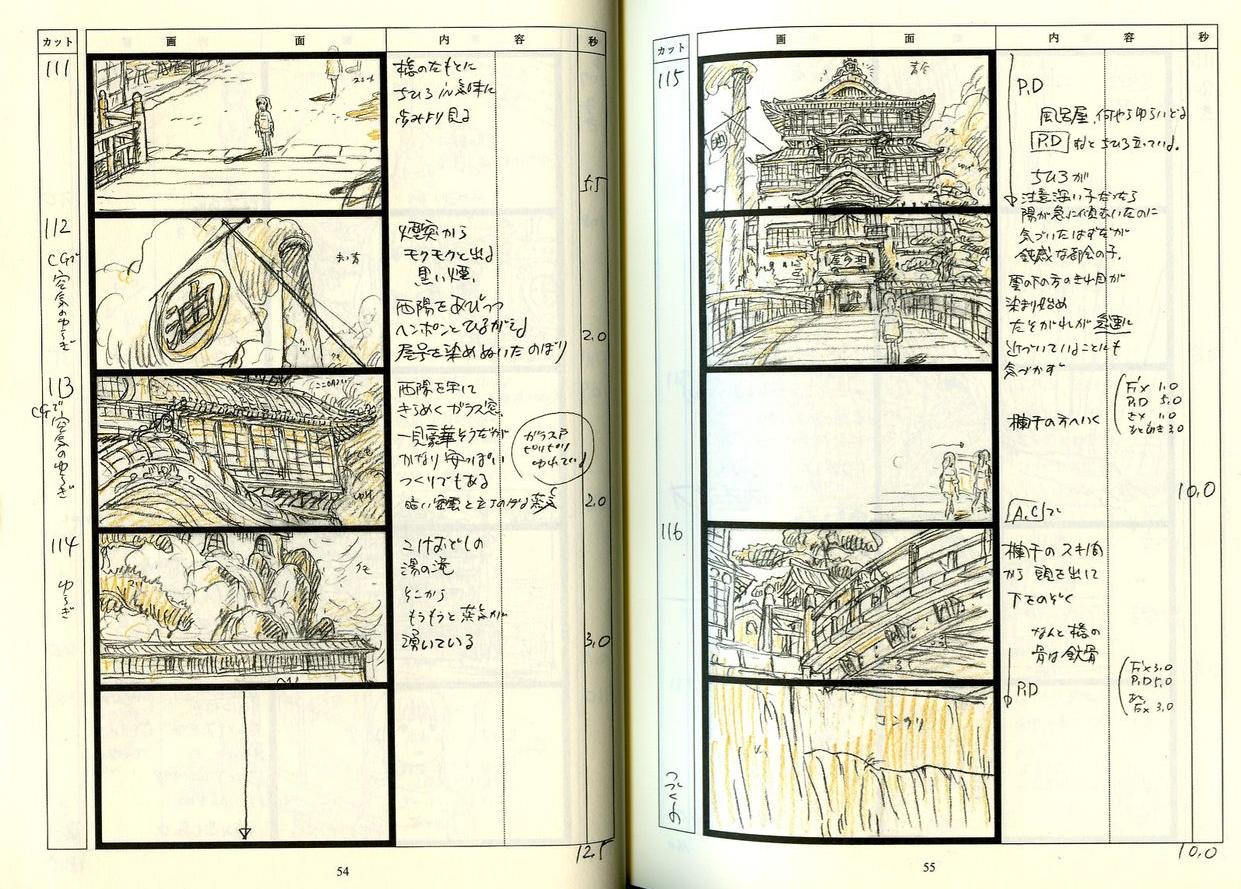 カット
画 面
内 容
秒
111
橋のたもとに
ちひろ
歩みより見る
5.5
112
CGで
空気のゆらぎ
煙突から
モクモクと出る
黒い煙、
西陽をあびつつ
ヘンポンとひるがえる
屋号を染めぬいたのぼり
2.0
油
113
CGで
空気のゆらぎ
西陽を
きらめくガラス窓、
一見豪華そうだが
かなり安っぽい
つくりでもある
ガラス戸
ビリビリ
ゆれている
2.0
114
ゆらぎ
こけおどしの
湯の滝
そこから
もうもうと蒸気が
湧いている
3.0
12.5
54
カット
画 面
内 容
秒
115
P.D
風呂屋、何やらゆらいどる
P.D ちひろ立っている。
ちひろが
注意深い子だったら
陽が急に傾むいたのに
気づいたはずだが
鈍感な都会の子。
雲の下の方のきれ目が
染まり始め
たそがれが急速に
近づいていることにも
気づかず
油屋
Fix 1.0
P.D 5.0
欄干の方へいく
10.0
A.C で
116
欄干のスキ間
から頭を出して
下をのぞく
なんと橋の
骨は鉄骨
P.D
Fix 3.0
P.D 5.0
Fix 3.0
コンクリ
つづくの
10.0
55